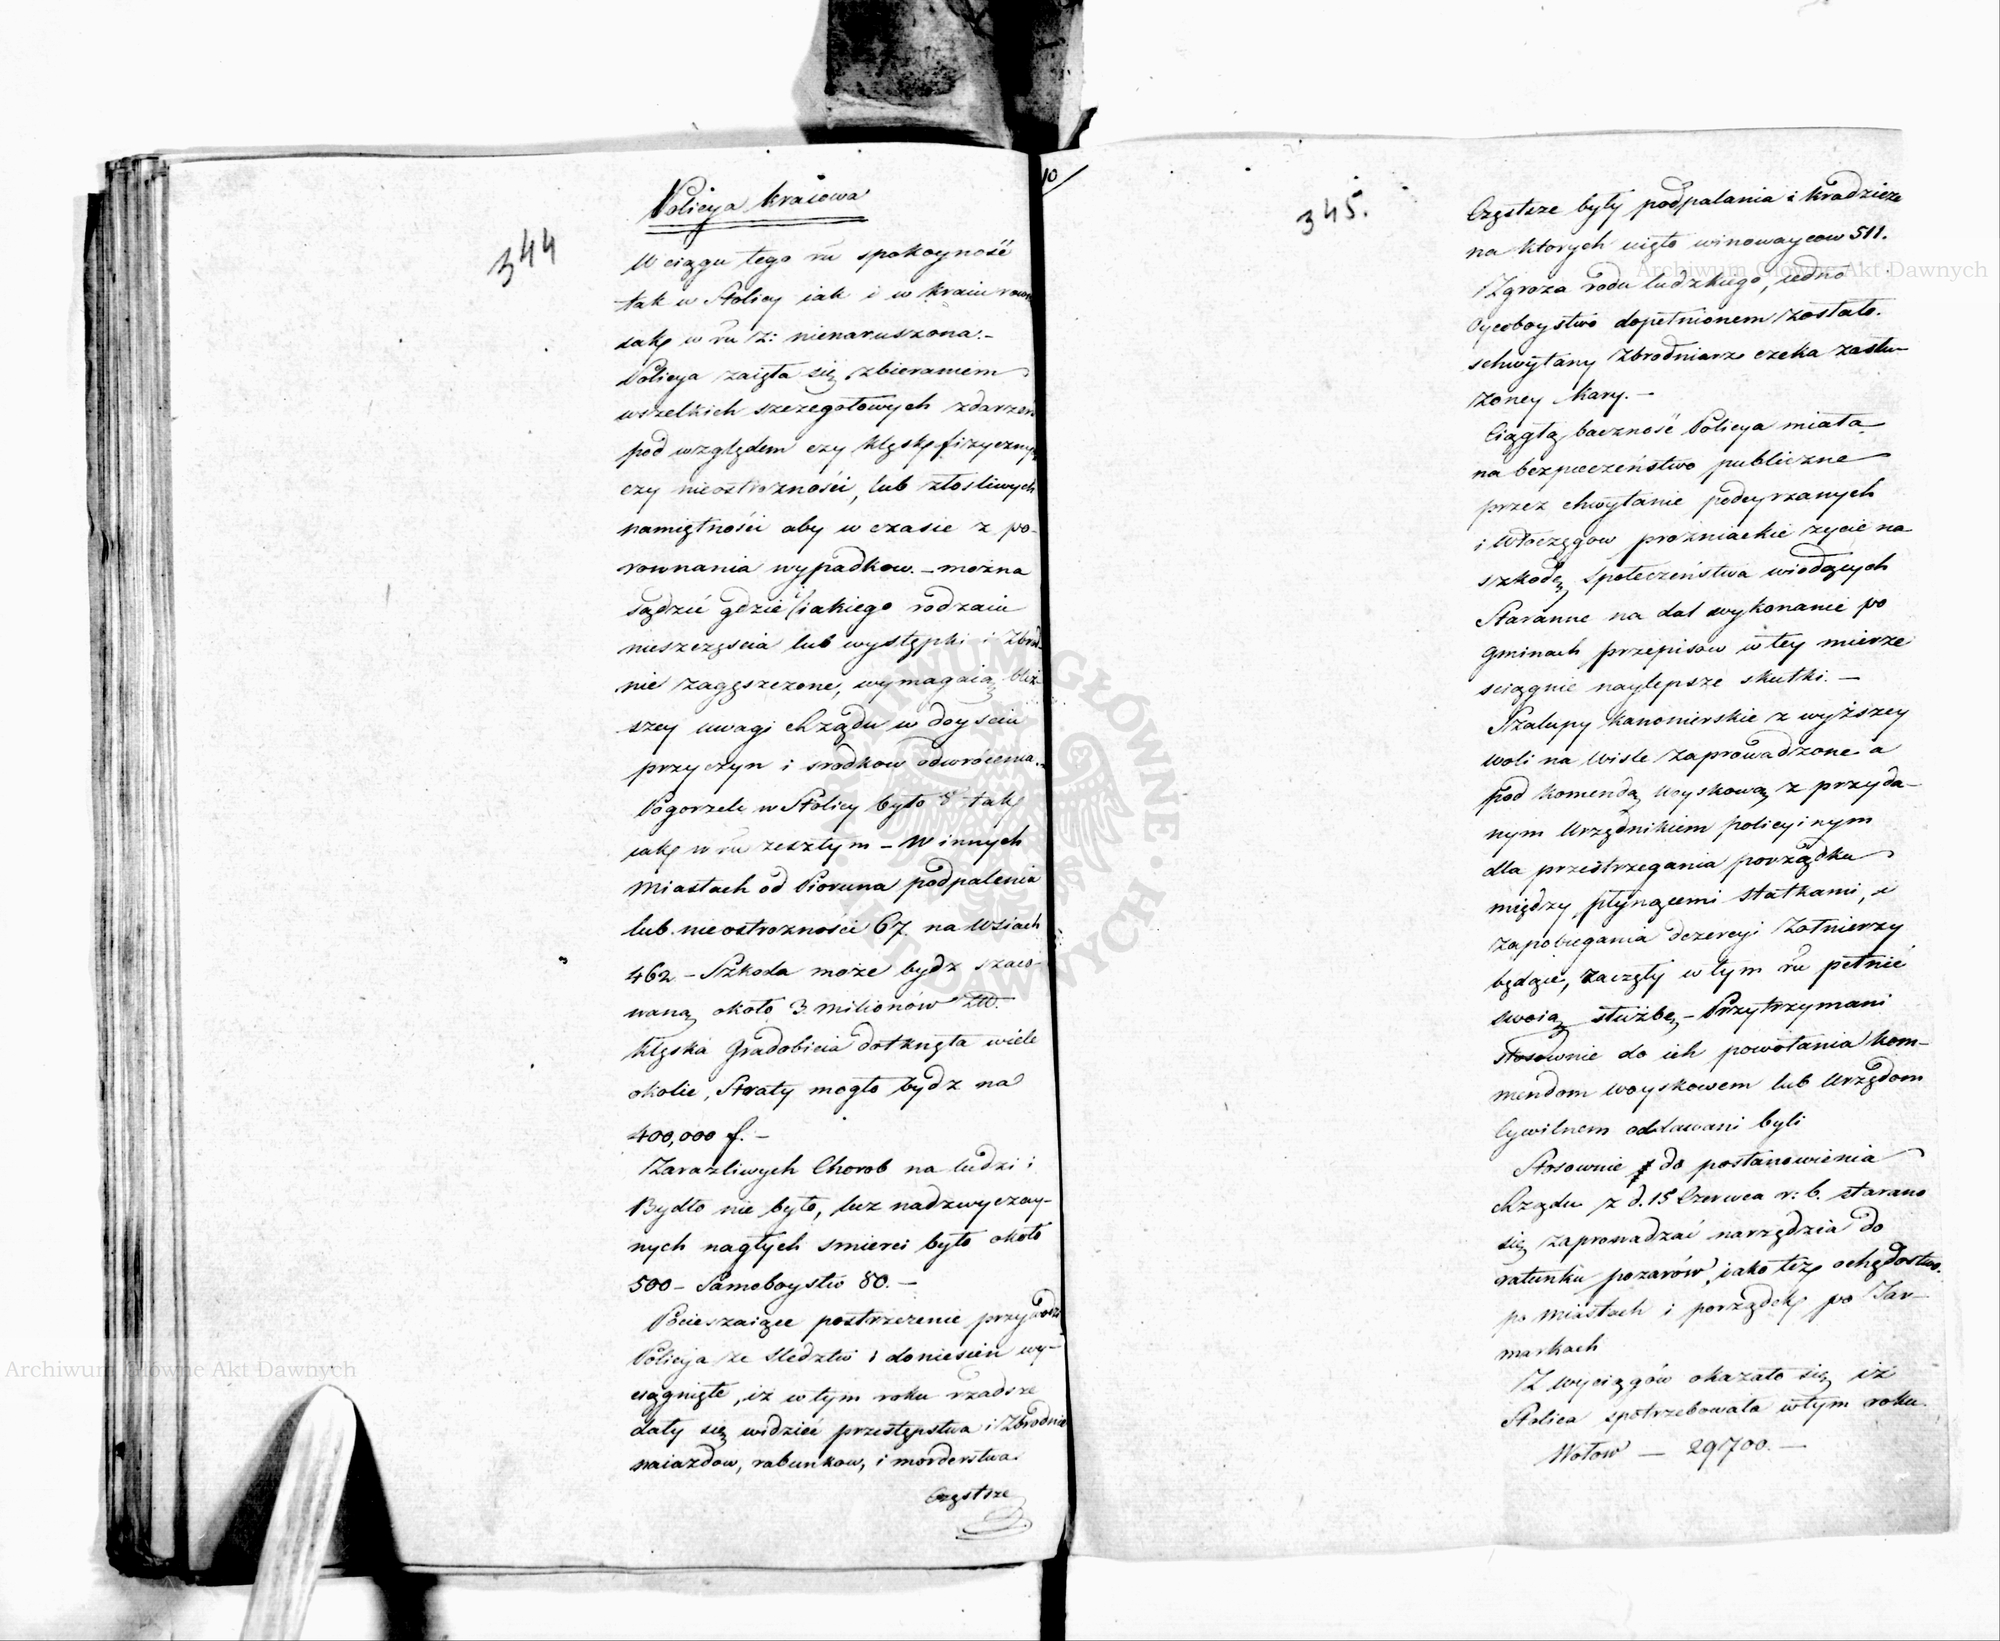 344
Policya kraiowa
W ciągu tego ru spokoyność
tak w Stolicy iak i w kraiu rown
iak w ru z: nienaruszona.-
Policya zaięta się zbieraniem
wszelkich szczegołowych zdarzen
pod względem czy klęsk fizycznych
czy nieostrożności, lub złosliwych
namiętności aby w czasie z po-
rownania wypadkow.- można
sądzić gdzie iakiego rodzaiu
nieszczęscia lub występki i Zbrod-
nie zagęszczone, wymagaią bliż-
szey uwagi Rządu w doyściu
przyczyn i srodkow odwrócenia.-
Pogorzele w Stolicy było 8 tak
iak w ru zeszłym - W innych
Miastach od Pioruna podpalenia
lub nieostrozności 67. na Wsiach
462 - Szkoda może bydz szaco-
waną około 3. Milionów Złł.
Klęska Gradobicia dotknęła wiele
okolic, Straty mogło bydz na
400,000 f. -
Zarazliwych Chorob na ludzi i
Bydło nie było, lecz nadzwyczay-
nych nagłych smierci było około
500 - Samoboystw 80. -
Pocieszaiące postrzeżenie przywodzi
Policyja ze sledztw i doniesien wy-
ciągnięte, iż w tym roku rzadsze
dały się widzieć przestępstwa i Zbrodnie
naiazdow, rabunkow, i morderstwa.
Częstsze
10
345.
Częstsze były podpalania i kradzieże
na ktorych uięto winowaycow 511.
Zgroza rodu ludzkiego, iedno
Oycoboystwo dopełnionem zostało.
schwytany Zbrodniarz czeka zasłu-
żoney kary. -
Ciągłą bacznośc Policya miała
na bezpieczeństwo publiczne
przez chwytanie podeyrzanych
i Włoczęgow prożniackie życie na
szkodę społeczeństwa wiodących
Staranne na dal wykonanie po
Gminach przepisow w tey mierze
sciągnie naylepsze skutki. -
Szalupy kanonierskie z wyższey
woli na Wisle zaprowadzone a
pod komendą woyskową z przyda-
nym Urzędnikiem policyinym
dla przestrzegania porządku
między płynącemi statkami, i
zapobiegania dezercyi Żołnierzy
będące, zaczęły w tym ru pełnić
swoią służbę - Przytrzymani
stosownie do ich powołania kom-
mendom woyskowem lub Urzędom
Cywilnem oddawani byli
Stosownie do postanowienia
Rządu z d. 15 Czerwca r: b. starano
się zaprowadzać narzędzia do
ratunku pożarów, iako też ochędostwo.
po Miastach i porządek po Jar-
markach
Z wyciągów okazało się iż
Stolica spotrzebowała w tym roku.
Wołow - 29700. -
Archiwum Główne Akt Dawnych
Archiwum Główne Akt Dawnych
ARCHIWUM GŁÓWNE AKT DAWNYCH